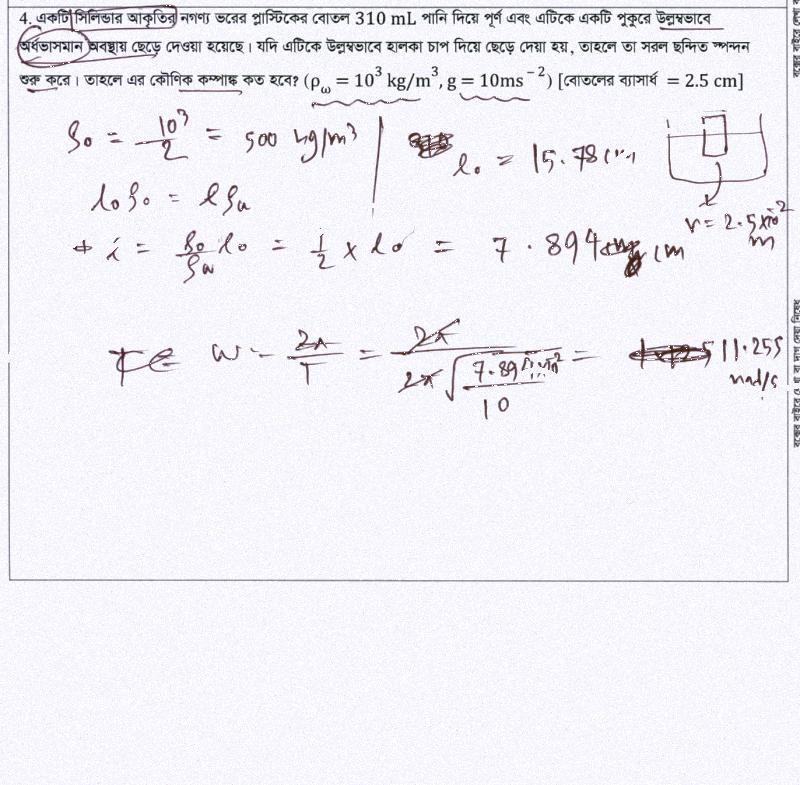 4. একটি সিলিন্ডার আকৃতির নগণ্য ভরের প্লাস্টিকের বোতল 310 mL পানি দিয়ে পূর্ণ এবং এটিকে একটি পুকুরে উল্লম্বভাবে
অর্ধভাসমান অবস্থায় ছেড়ে দেওয়া হয়েছে। যদি এটিকে উল্লম্বভাবে হালকা চাপ দিয়ে ছেড়ে দেয়া হয়, তাহলে তা সরল ছন্দিত স্পন্দন
শুরু করে। তাহলে এর কৌণিক কম্পাঙ্ক কত হবে? (ρ_ω = 10³ kg/m³, g = 10ms⁻²) [বোতলের ব্যাসার্ধ = 2.5 cm]
ρ₀ = 10³/2 = 500 kg/m³
l₀ = 15.78 cm
r = 2.5×10⁻² m
l₀ρ₀ = lρω
l = ρ₀/ρω l₀ = 1/2 × l₀ = 7.894 cm
ω = 2π/T = 2π/2π√(7.894×10⁻²/10) = 11.255 rad/s